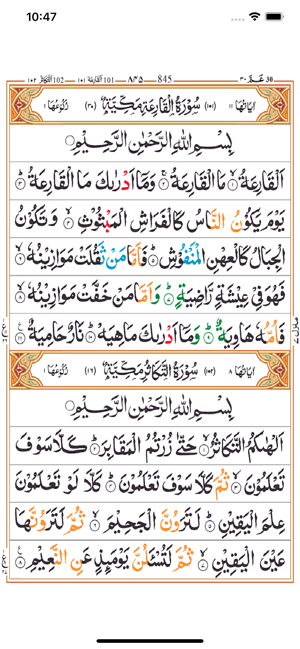 10:47
١٠٢ التكاثر 102 ١٠١ القارعة 101 ٨٤٥ 845 ٣٠ عم 30
اٰيَاتُهَا ١١ (١٠١) سُوْرَةُ الْقَارِعَةِ مَكِّيَّةٌ (٣٠) رُكُوْعُهَا ١
بِسْمِ اللهِ الرَّحْمٰنِ الرَّحِيْمِ
اَلْقَارِعَةُ ۙ ١ مَا الْقَارِعَةُ ۚ ٢ وَمَاۤ اَدْرٰىكَ مَا الْقَارِعَةُ ؕ ٣
يَوْمَ يَكُوْنُ النَّاسُ كَالْفَرَاشِ الْمَبْثُوْثِ ۙ ٤ وَتَكُوْنُ
الْجِبَالُ كَالْعِهْنِ الْمَنْفُوْشِ ؕ ٥ فَاَمَّا مَنْ ثَقُلَتْ مَوَازِيْنُهٗ ۙ ٦
فَهُوَ فِيْ عِيْشَةٍ رَّاضِيَةٍ ؕ ٧ وَاَمَّا مَنْ خَفَّتْ مَوَازِيْنُهٗ ۙ ٨
فَاُمُّهٗ هَاوِيَةٌ ؕ ٩ وَمَاۤ اَدْرٰىكَ مَاهِيَهْ ؕ ١٠ نَارٌ حَامِيَةٌ ١١
اٰيَاتُهَا ٨ (١٠٢) سُوْرَةُ التَّكَاثُرِ مَكِّيَّةٌ (١٦) رُكُوْعُهَا ١
بِسْمِ اللهِ الرَّحْمٰنِ الرَّحِيْمِ
اَلْهٰىكُمُ التَّكَاثُرُ ۙ ١ حَتّٰى زُرْتُمُ الْمَقَابِرَ ؕ ٢ كَلَّا سَوْفَ
تَعْلَمُوْنَ ۙ ٣ ثُمَّ كَلَّا سَوْفَ تَعْلَمُوْنَ ؕ ٤ كَلَّا لَوْ تَعْلَمُوْنَ
عِلْمَ الْيَقِيْنِ ؕ ٥ لَتَرَوُنَّ الْجَحِيْمَ ۙ ٦ ثُمَّ لَتَرَوُنَّهَا
عَيْنَ الْيَقِيْنِ ۙ ٧ ثُمَّ لَتُسْـَٔلُنَّ يَوْمَىِٕذٍ عَنِ النَّعِيْمِ ٨